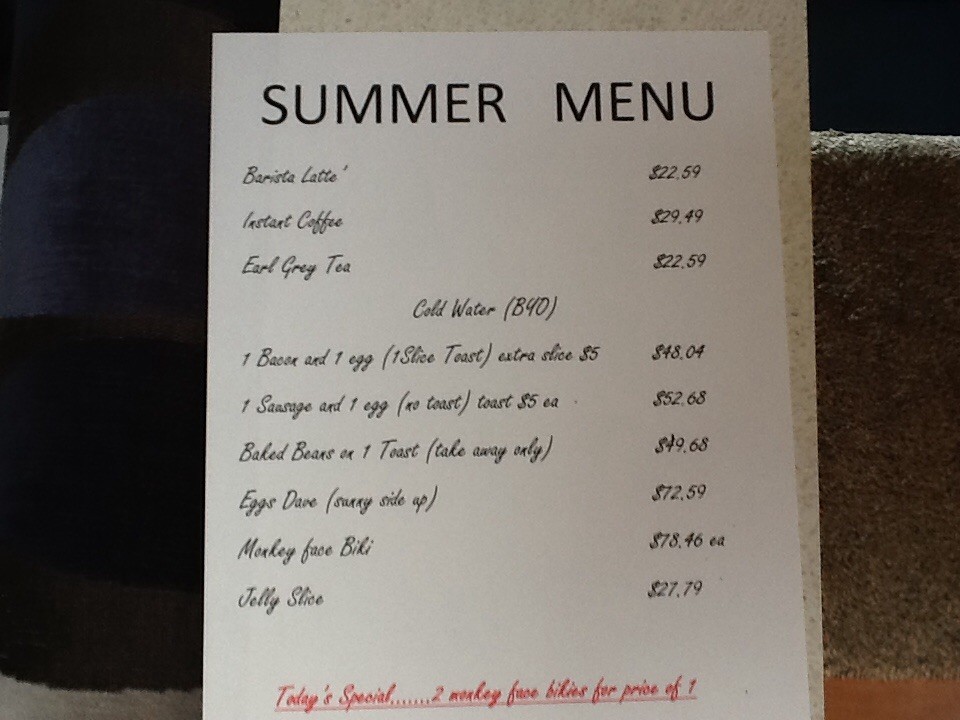 SUMMER MENU
Barista Latte' $22.59
Instant Coffee $29.49
Earl Grey Tea $22.59
Cold Water (BYO)
1 Bacon and 1 egg (1Slice Toast) extra slice $5 $48.04
1 Sausage and 1 egg (no toast) toast $5 ea $52.68
Baked Beans on 1 Toast (take away only) $49.68
Eggs Dave (sunny side up) $72.59
Monkey face Biki $78.46 ea
Jelly Slice $27.79
Today's Special.......2 monkey face bikies for price of 1